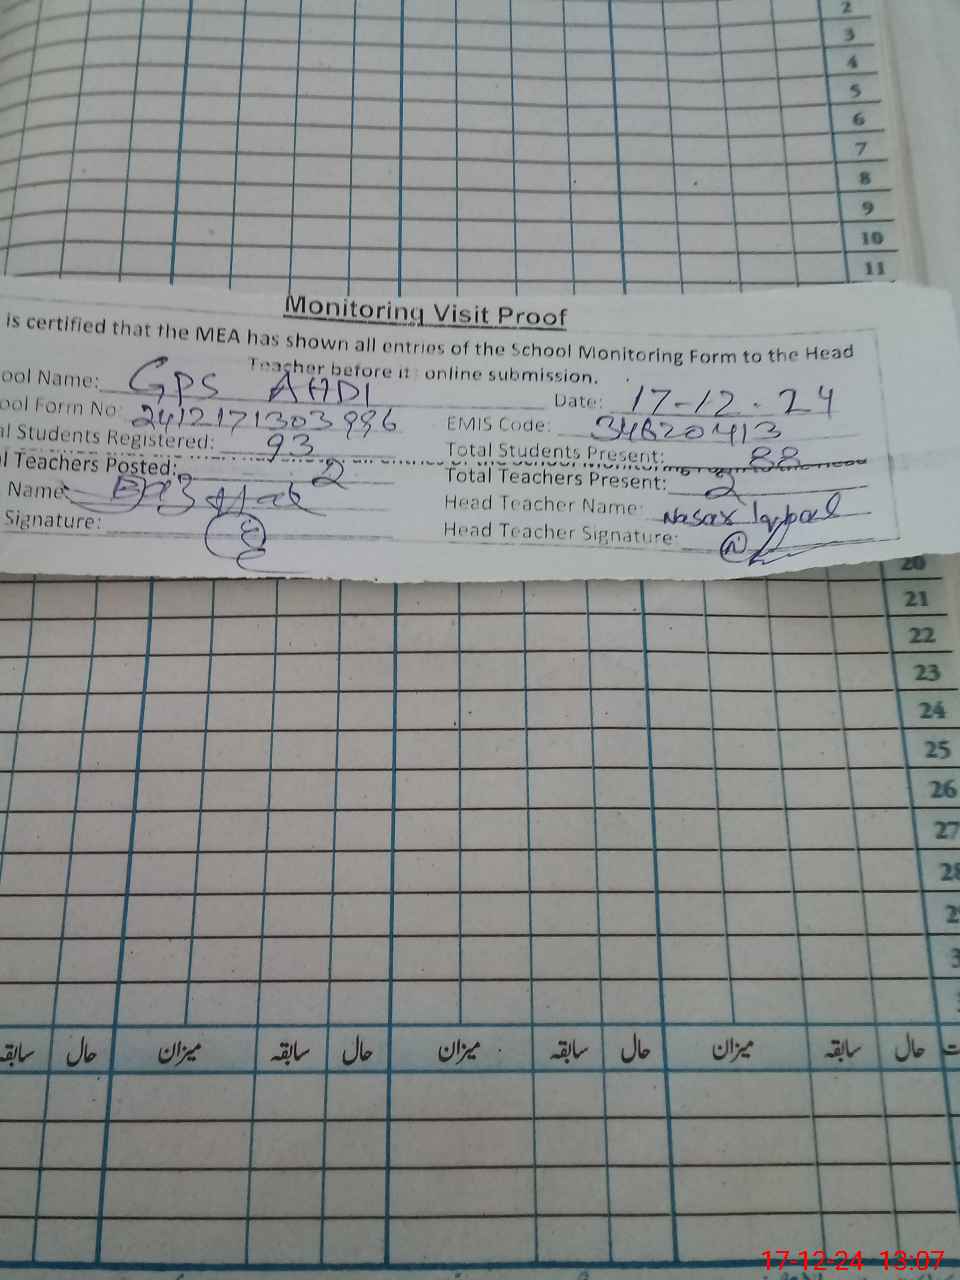 2
3
4
5
6
7
8
9
10
11
Monitoring Visit Proof
is certified that the MEA has shown all entries of the School Monitoring Form to the Head
Teacher before it online submission.
ool Name: GPS AHDI Date: 17-12-24
ool Form No: EMIS Code: 34620413
al Students Registered: 93 Total Students Present: 88
l Teachers Posted: 2 Total Teachers Present: 2
Name: Head Teacher Name: Iqbal
Signature: Head Teacher Signature:
20
21
22
23
24
25
26
27
28
سابقہ حال میزان سابقہ حال میزان سابقہ حال میزان سابقہ حال
17-12-24 13:07